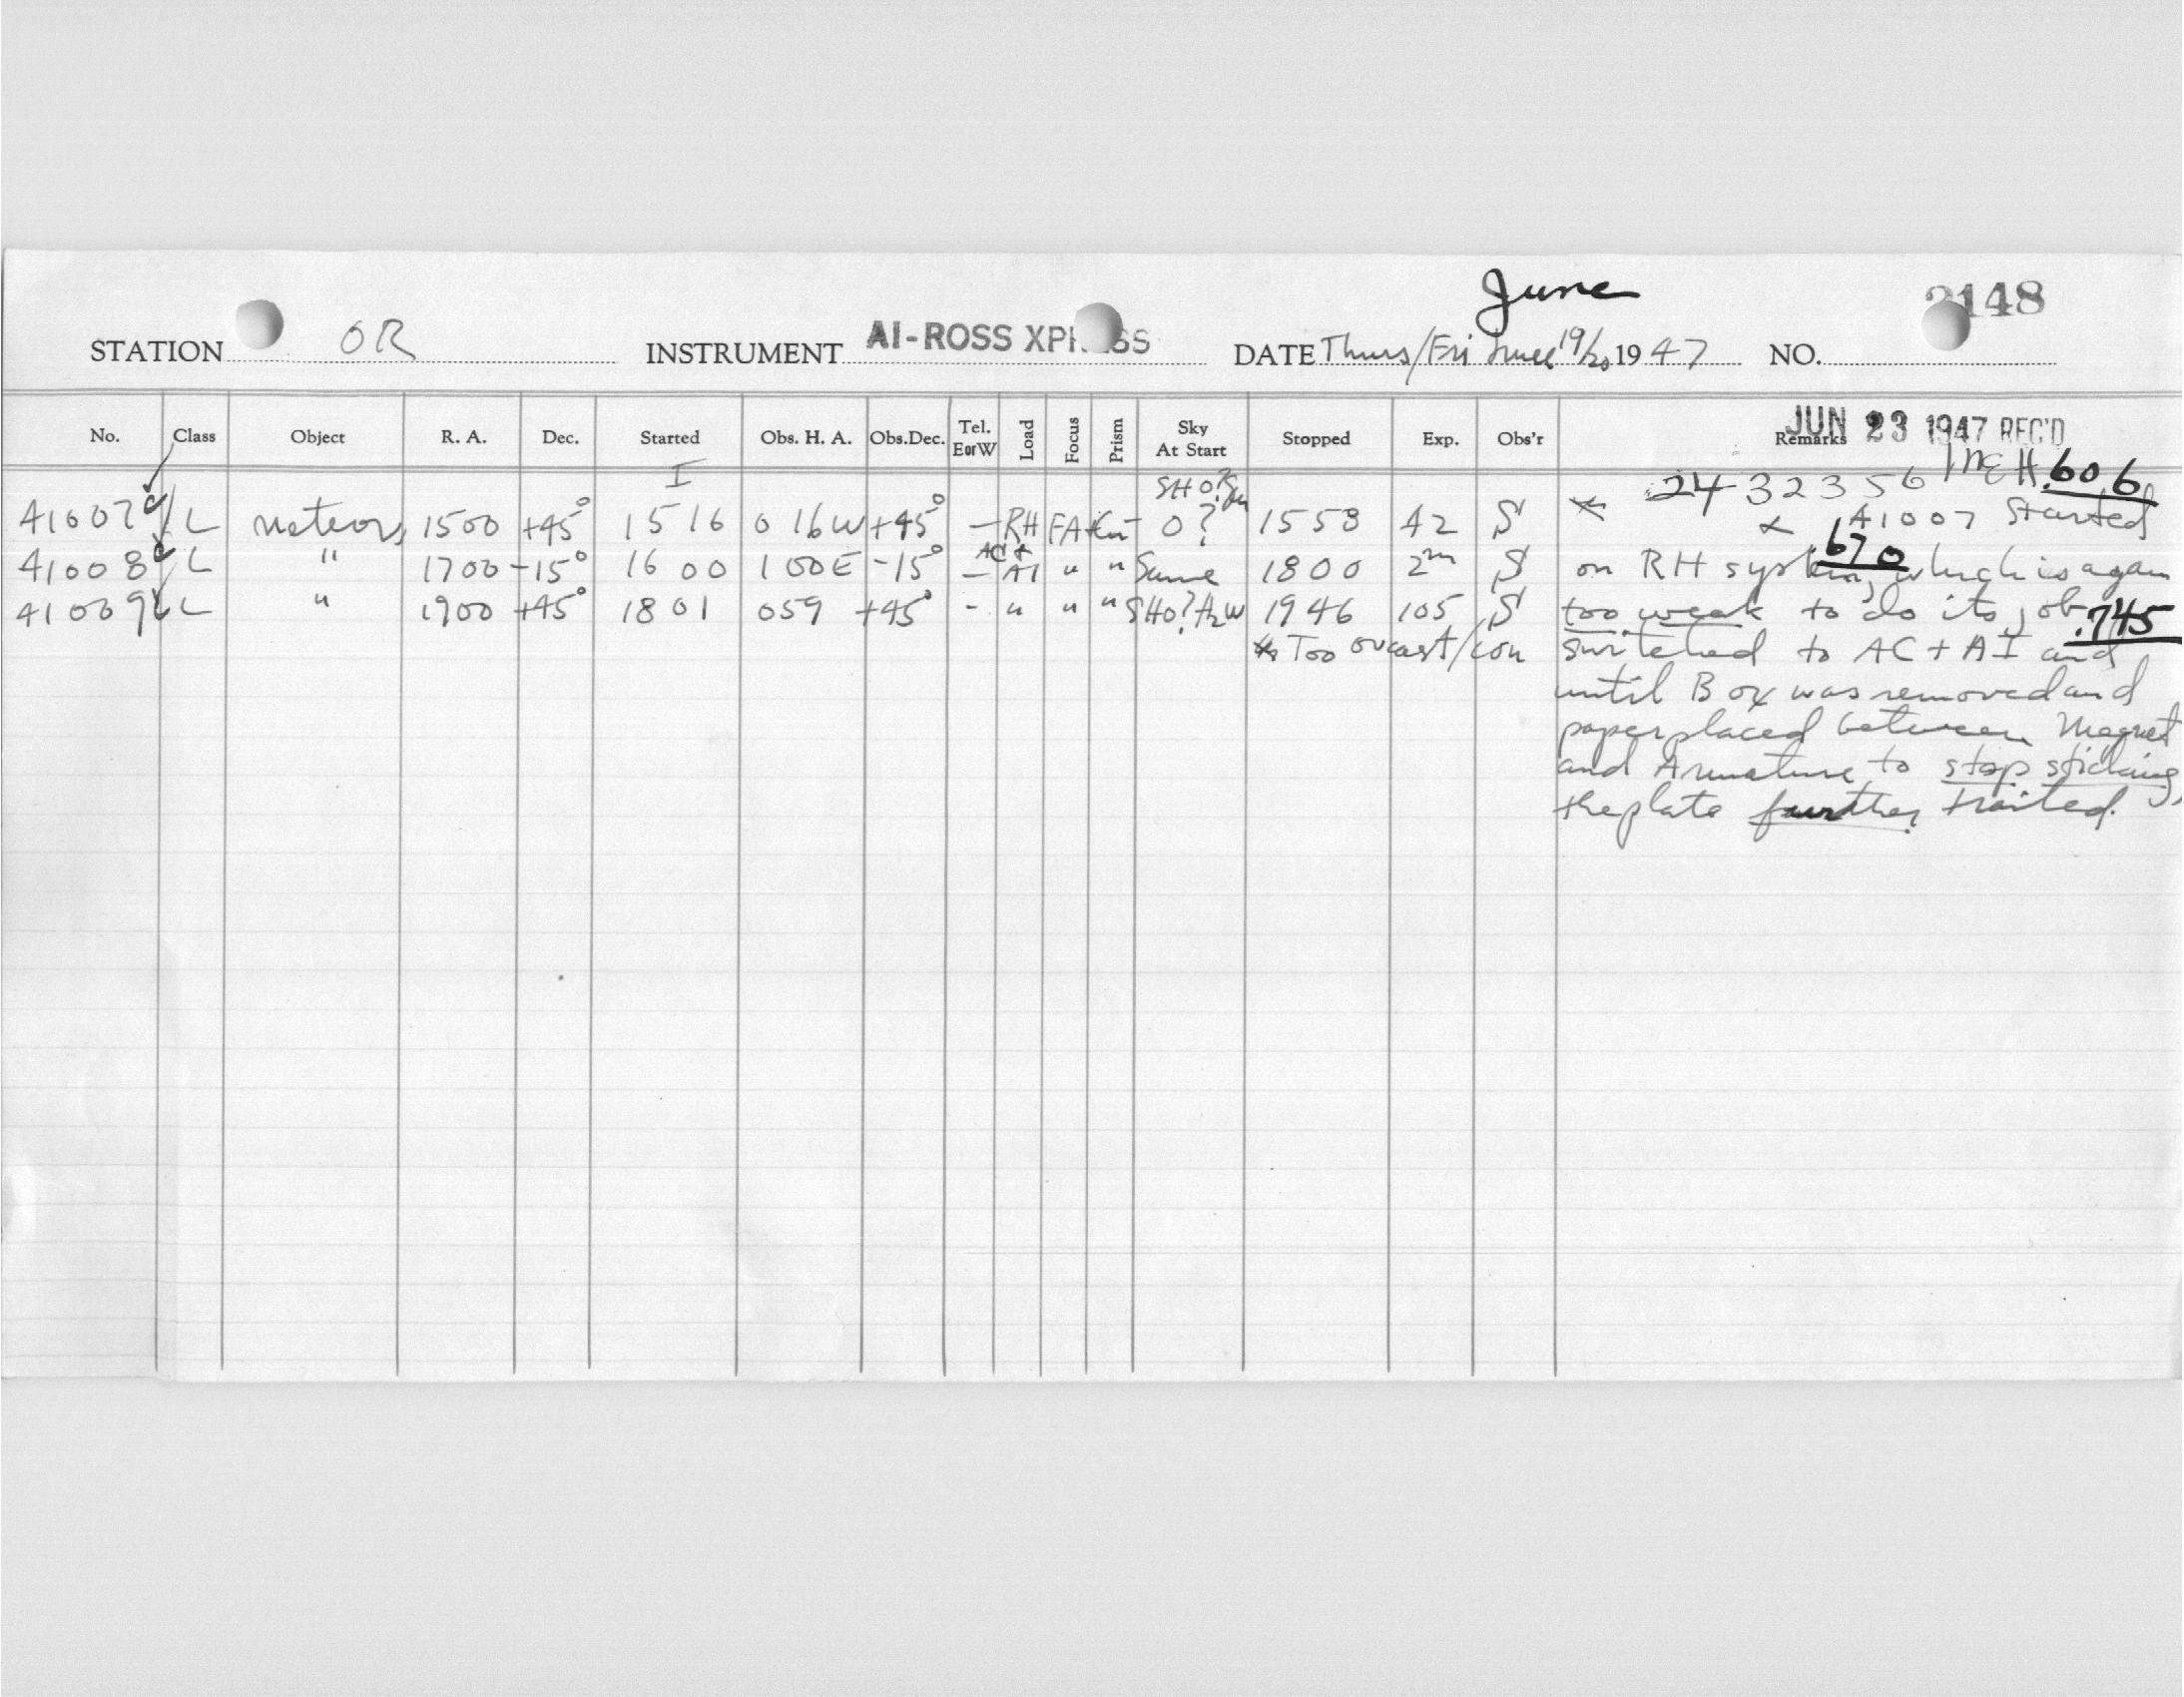 June
2148
STATION OR INSTRUMENT AI-ROSS XPRESS DATE Thurs/Fri June 19/20 1947 NO.
No. Class Object R. A. Dec. Started Obs. H. A. Obs.Dec. Tel. EorW Load Focus Prism Sky At Start Stopped Exp. Obs'r Remarks
JUN 23 1947 REC'D
I SHO? 2432356 MEH .606
41007 L meteors 1500 +45° 1516 016W +45° - RH FA O? 1558 42 S * A1007 Started
41008 L " 1700 -15° 1600 100E -15° - AC + AI " " Same 1800 2 S on RH system, which is again .670
41009 L " 1900 +45° 1801 059 +45° - " " " SHO? 1946 105 S too weak to do its job. .745
* Too ovcast/con switched to AC + AI and
until Box was removed and
paper placed between Magnet
and Armature to stop sticking,
the plate further trailed.